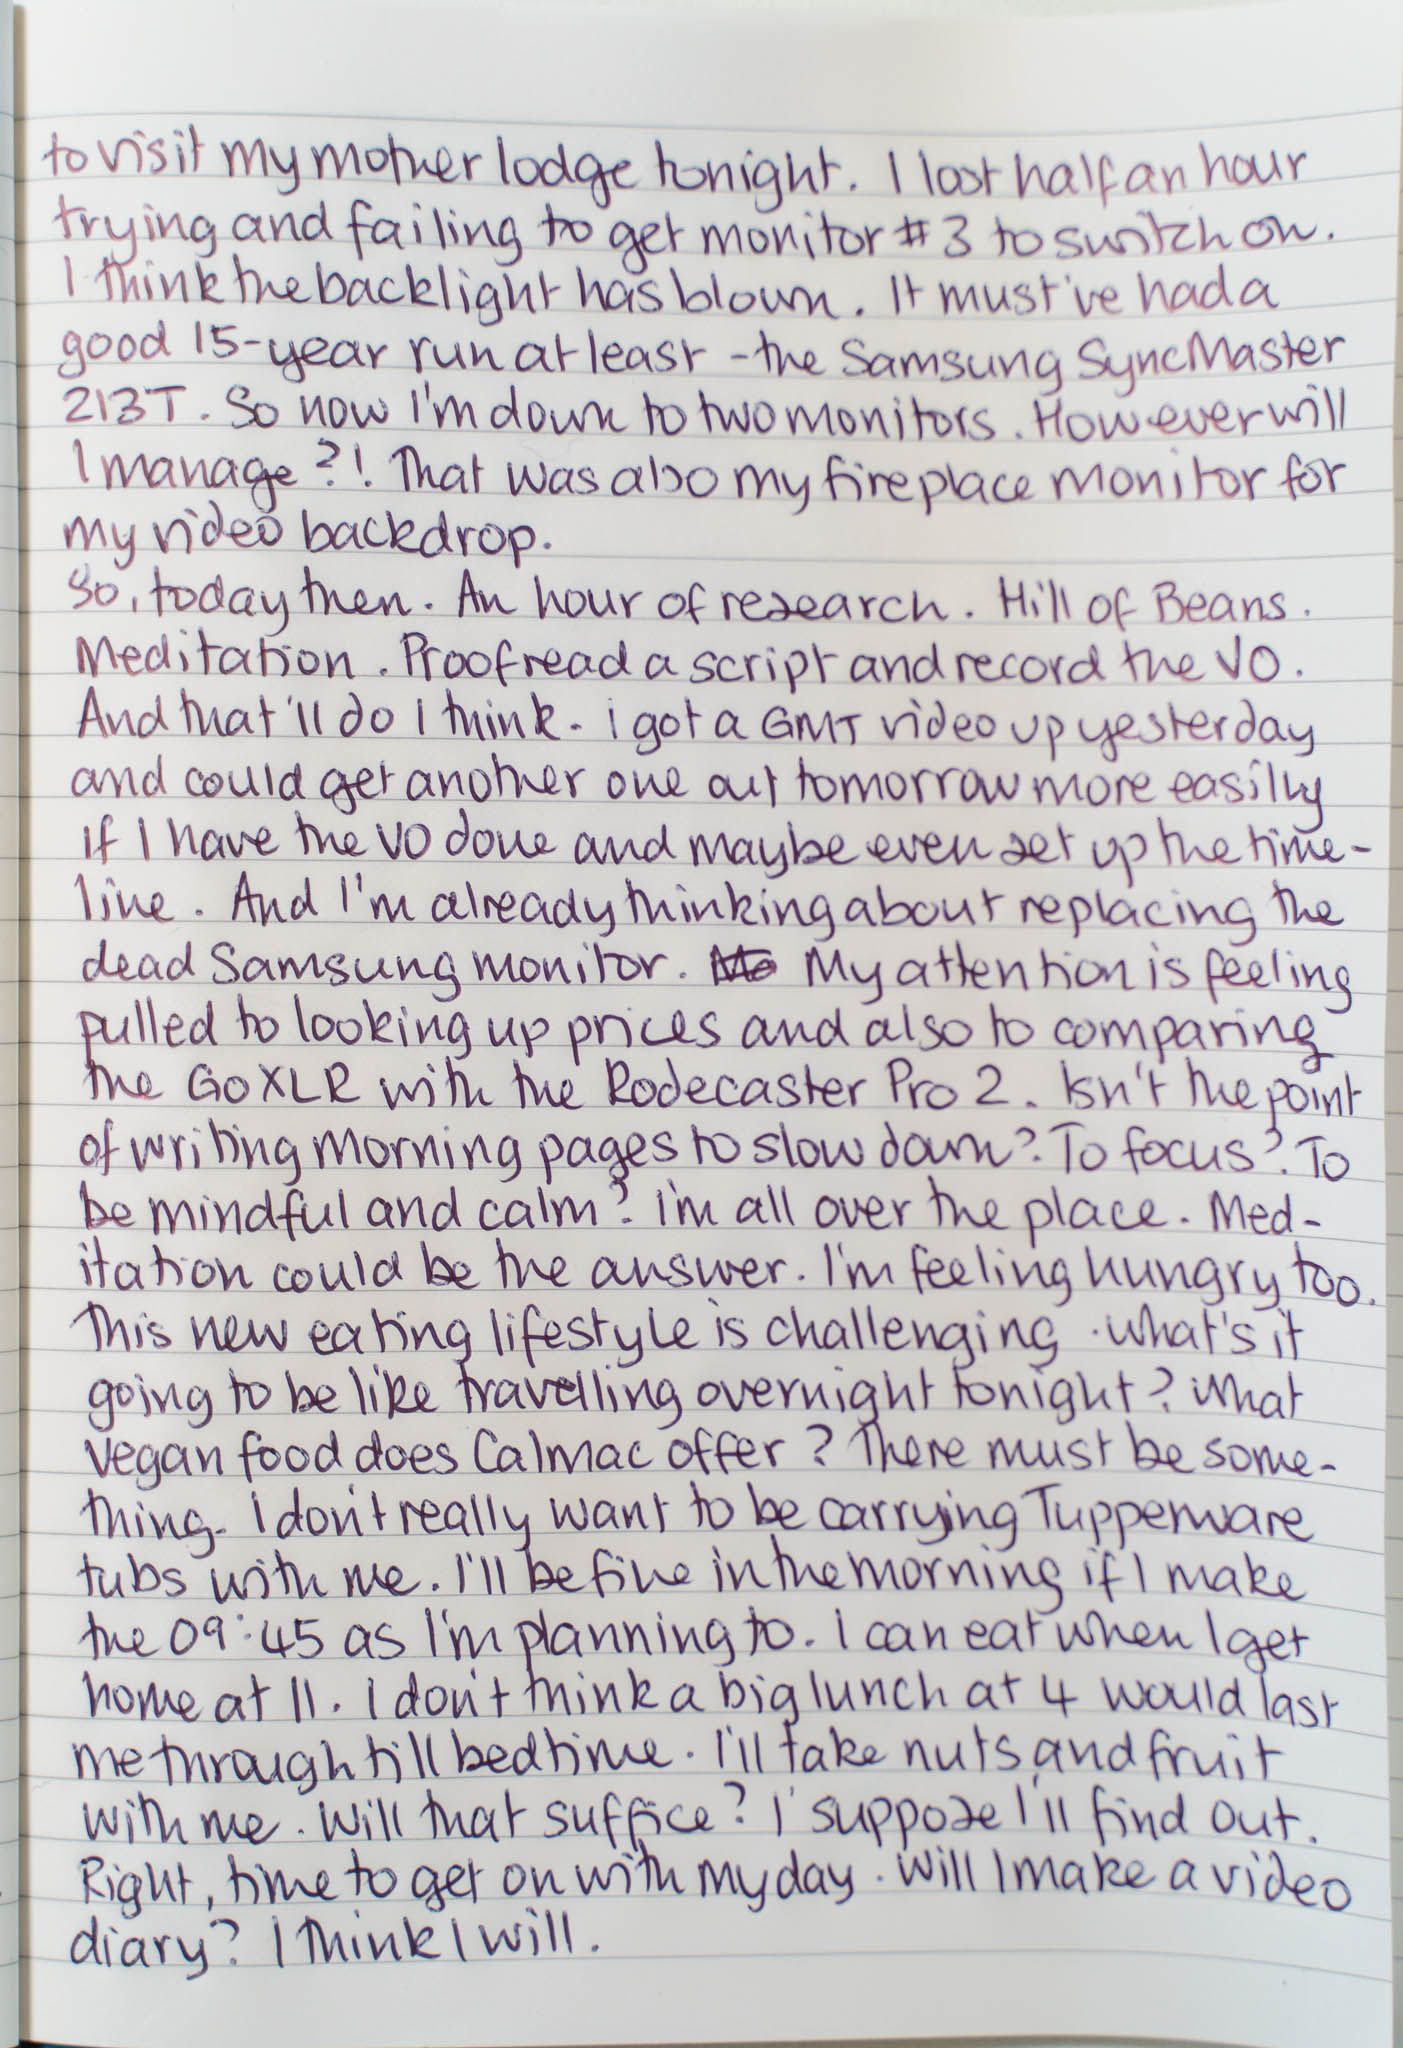 to visit my mother lodge tonight. I lost half an hour
trying and failing to get monitor #3 to switch on.
I think the backlight has blown. It must've had a
good 15-year run at least - the Samsung SyncMaster
213T. So now I'm down to two monitors. However will
I manage?! That was also my fireplace monitor for
my video backdrop.
So, today then. An hour of research. Hill of Beans.
Meditation. Proofread a script and record the VO.
And that'll do I think. I got a GMT video up yesterday
and could get another one out tomorrow more easilly
if I have the VO done and maybe even set up the time-
line. And I'm already thinking about replacing the
dead Samsung monitor. My attention is feeling
pulled to looking up prices and also to comparing
the GoXLR with the Rodecaster Pro 2. Isn't the point
of writing morning pages to slow down? To focus? To
be mindful and calm? I'm all over the place. Med-
itation could be the answer. I'm feeling hungry too.
This new eating lifestyle is challenging. What's it
going to be like travelling overnight tonight? What
vegan food does Calmac offer? There must be some-
thing. I don't really want to be carrying Tupperware
tubs with me. I'll be fine in the morning if I make
the 09:45 as I'm planning to. I can eat when I get
home at 11. I don't think a big lunch at 4 would last
me through till bedtime. I'll take nuts and fruit
with me. Will that suffice? I suppose I'll find out.
Right, time to get on with my day. Will I make a video
diary? I think I will.